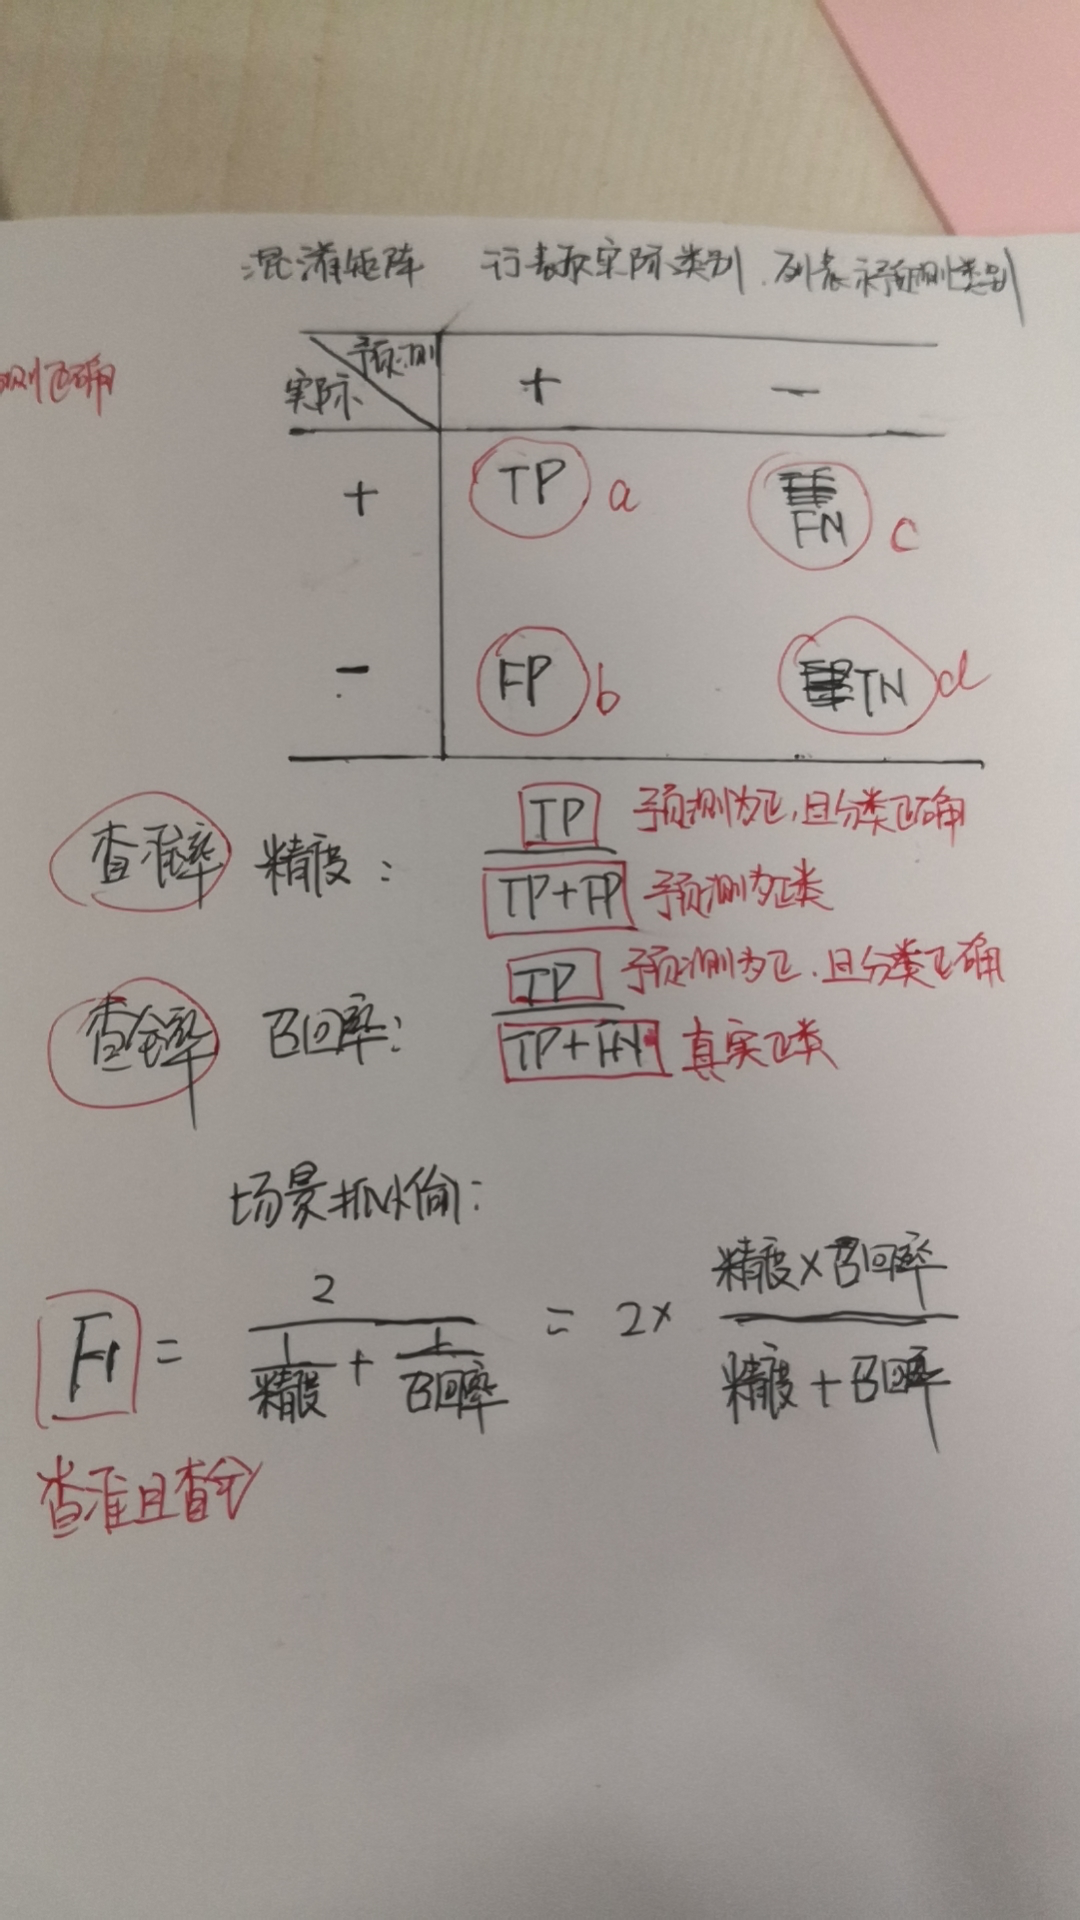 混淆矩阵 行表示实际类别.列表示预测类别
测正确
预测
实际 + -
+ TP a FN c
- FP b TN d
查准率 精度: TP 预测为正,且分类正确
TP+FP 预测为正类
查全率 召回率: TP 预测为正.且分类正确
TP+FN 真实正类
场景抓小偷:
F1 = 2 / (1/精度 + 1/召回率) = 2× 精度×召回率 / (精度+召回率)
查准且查全